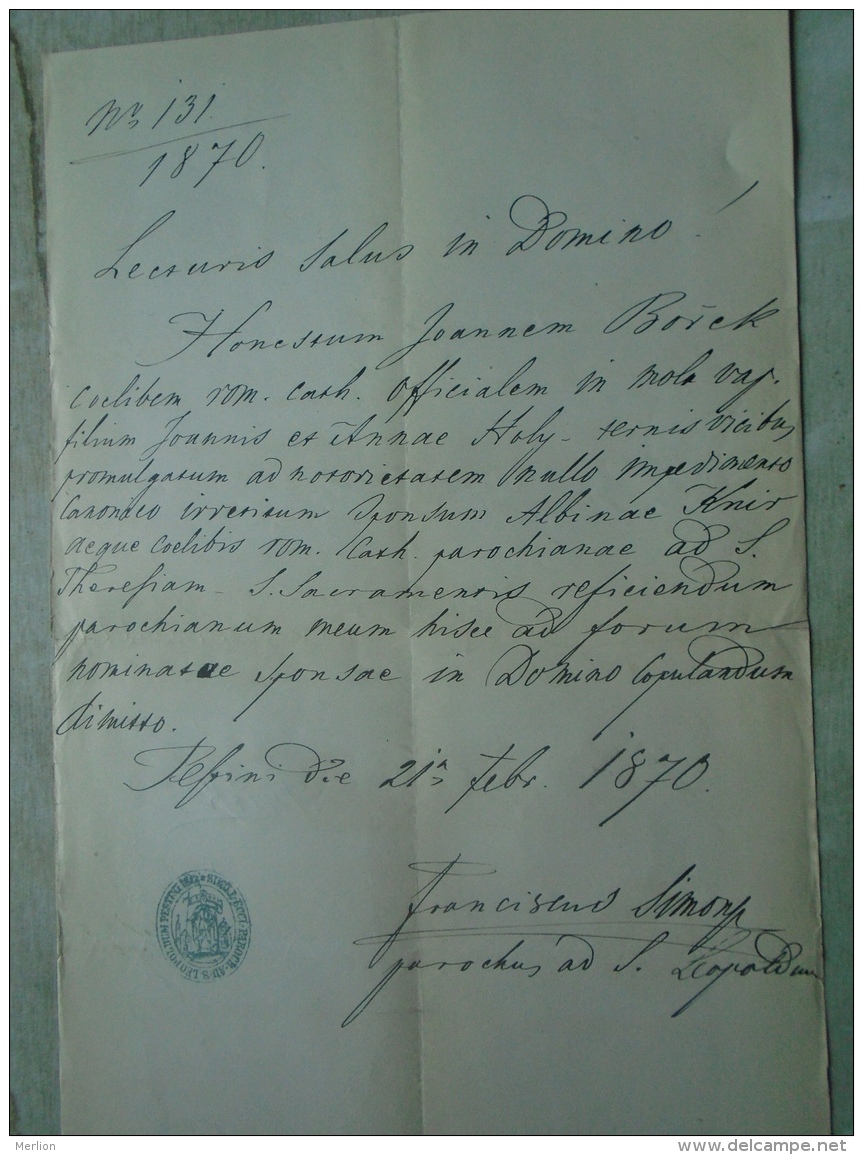 Nr 131.
1870.
Lecturis Salus in Domino!
Honestum Joannem Bořek
Coelibem rom. Cath. Officialem in mola vap.
filium Joannis et Annae Holy – ternis vicibus
promulgatum ad notorietatem nullo impedimento
Canonico irretitum Sponsum Albinae Knir
aeque Coelibis rom. Cath. parochianae ad S.
Theresiam – S. Sacramentis reficiendum
parochianum meum hisce ad forum
nominatae Sponsae in Domino Copulandum
dimitto.
Pestini die 21a Febr. 1870.
Franciscus Simon
parochus ad S. Leopoldum
SIGILL. ECCL. PAROCH. AD S. LEOPOLDUM PESTINI
Merlion
www.delcampe.net